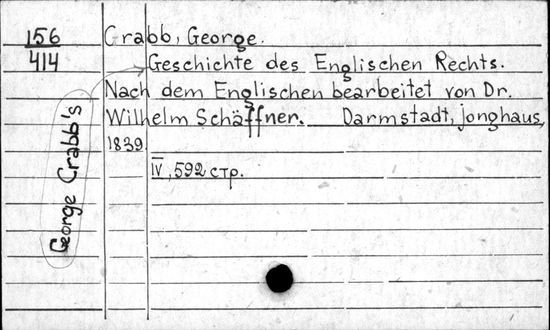 156
414
Crabb, George.
Geschichte des Englischen Rechts.
Nach dem Englischen bearbeitet von Dr.
Wilhelm Schäffner. Darmstadt, Jonghaus,
1839.
IV, 592 стр.
George Crabb's